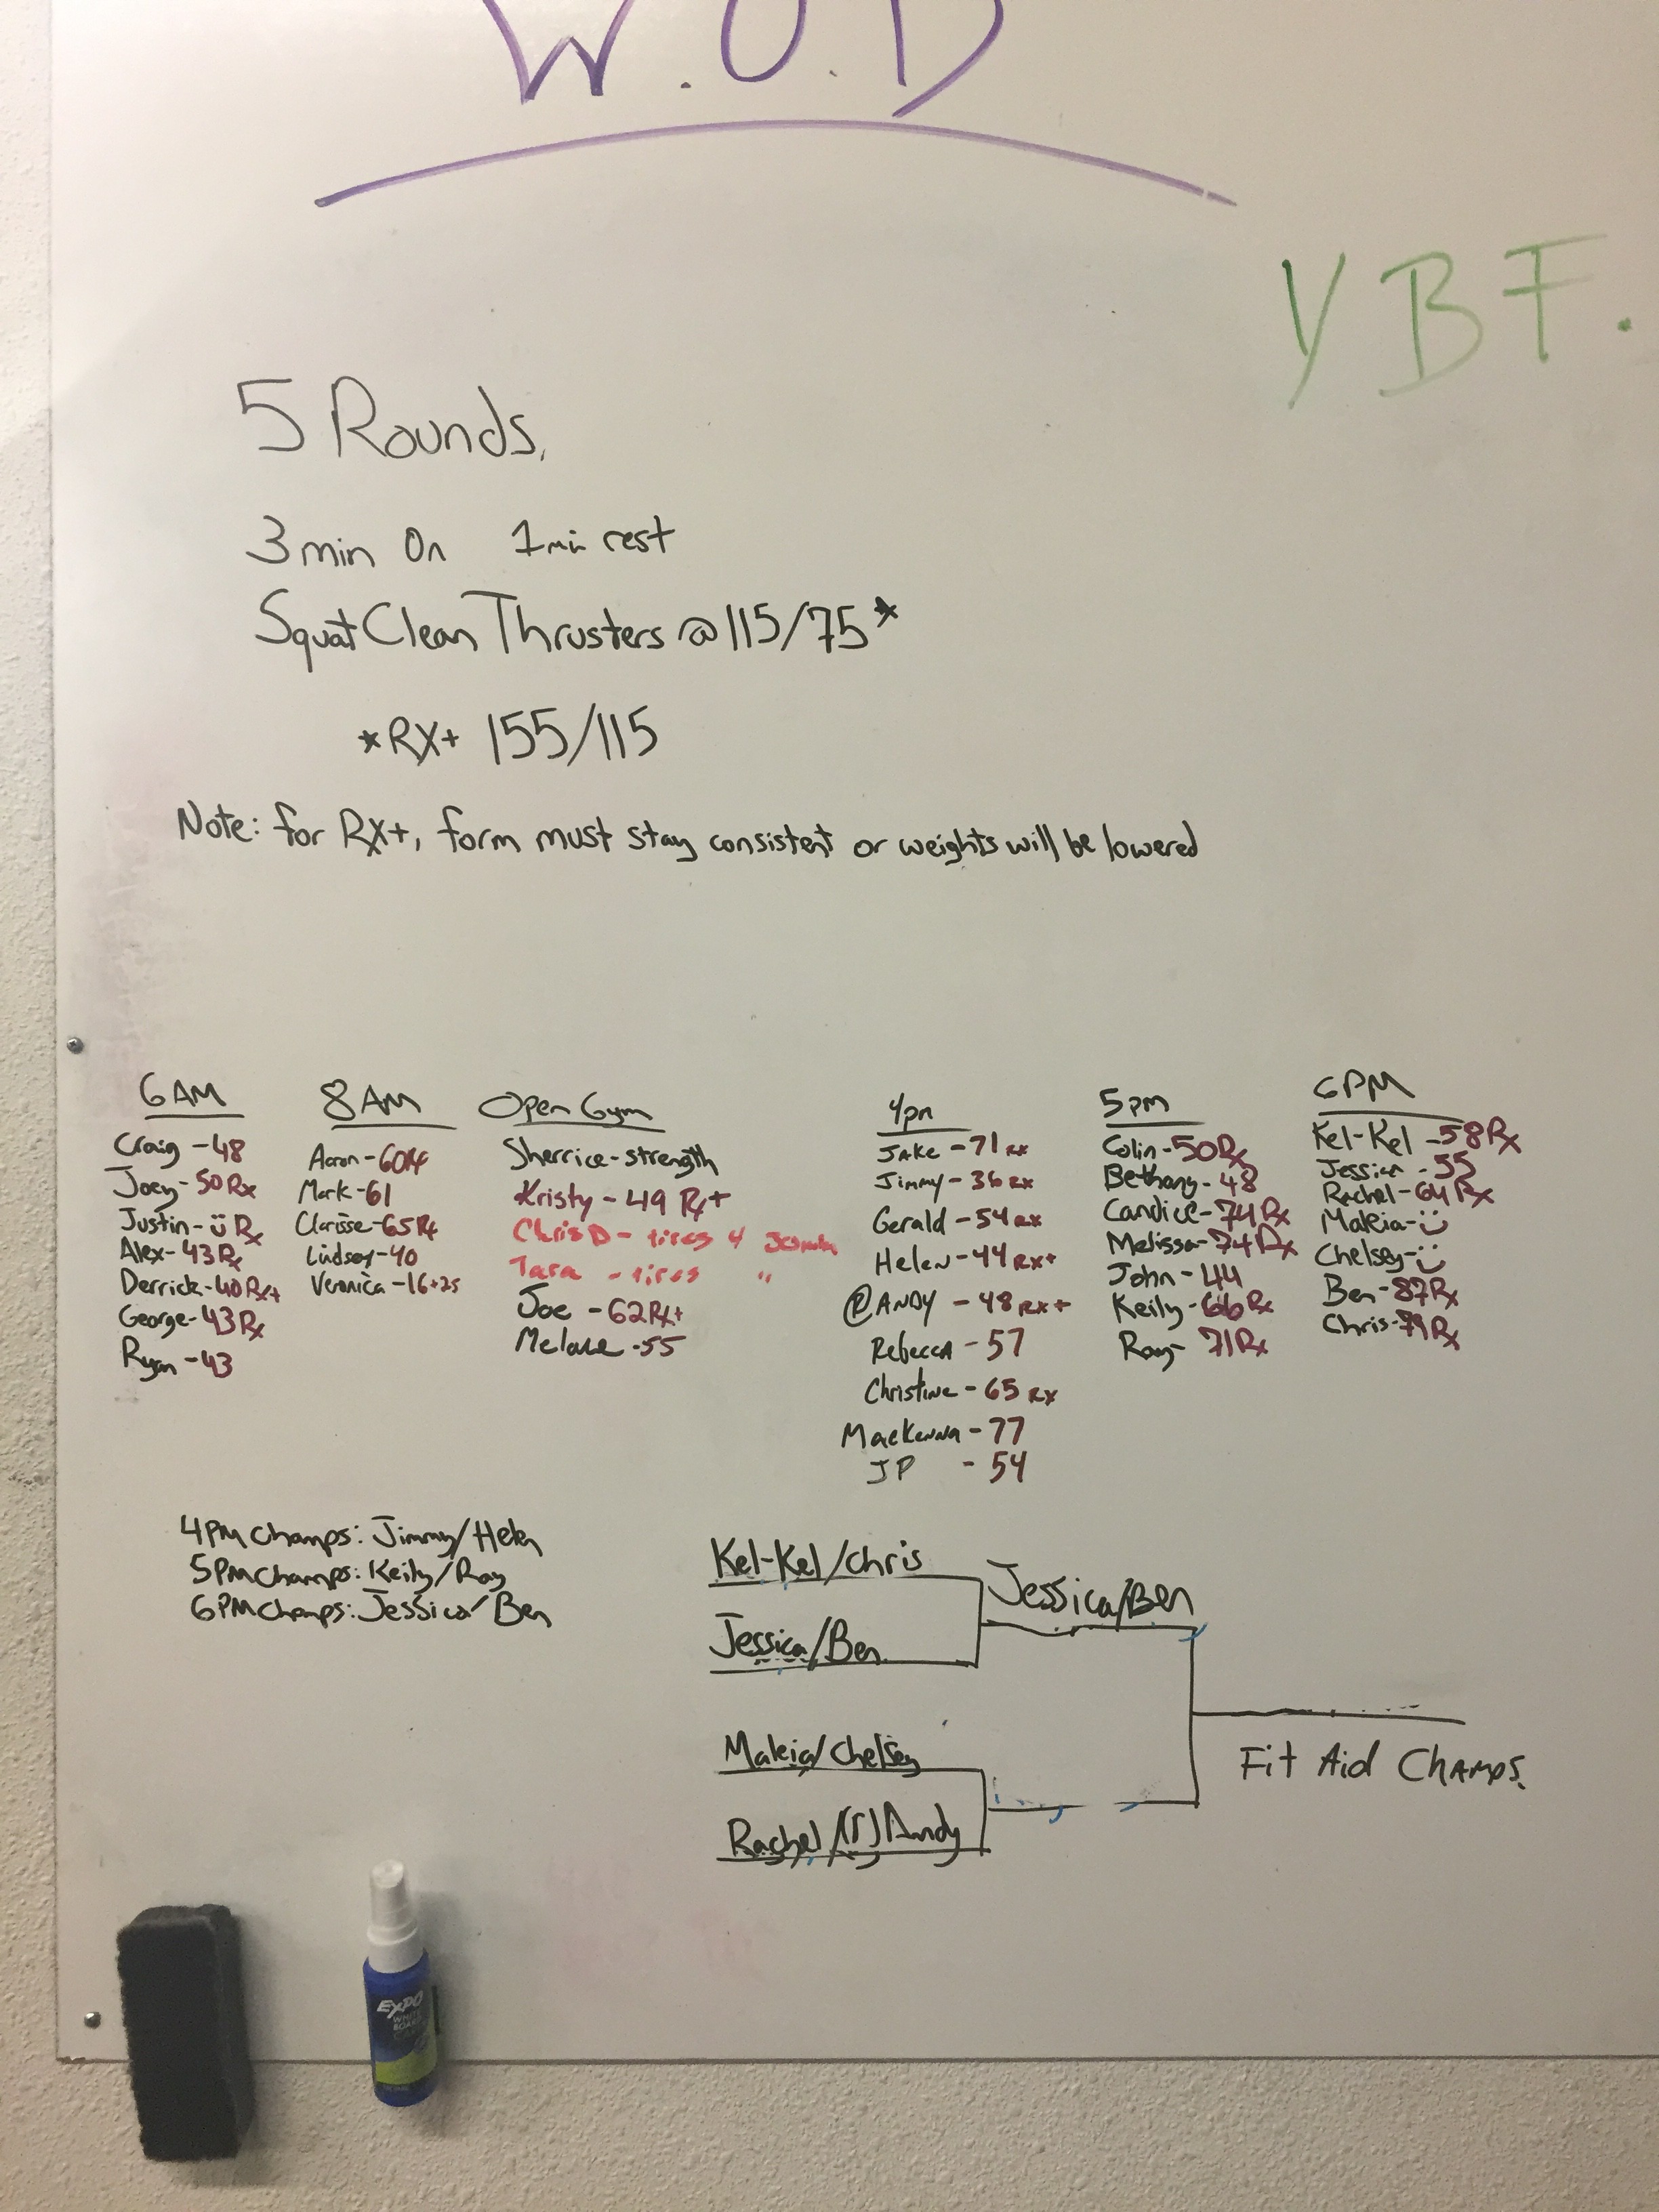 W.O.D
YBF.
5 Rounds,
3 min On 1 min rest
Squat Clean Thrusters @ 115/75*
*RX+ 155/115
Note: for RX+, form must stay consistent or weights will be lowered
6AM
Craig - 48
Joey - 50 Rx
Justin - Rx
Alex - 43 Rx
Derrick - 40 Rx+
George - 43 Rx
Ryan - 43
8AM
Aaron - 60 Rx
Mark - 61
Clarisse - 65 Rx
Lindsey - 40
Veronica - 16+25
Open Gym
Sherrice - strength
Kristy - 49 Rx+
Chris D - tires
Tara - tires "
Joe - 62 Rx+
55
4pm
JAKE - 71 RX
Jimmy - 36 RX
Gerald - 54 RX
Helen - 44 RX+
ANDY - 48 RX+
Rebecca - 57
Christine - 65 RX
Mackenna - 77
JP - 54
5pm
Colin - 50 Rx
Bethany - 48
Candice - 74 Rx
Melissa - 74 Rx
John - 44
Keily - 66 Rx
Ray - 71 Rx
6PM
Kel-Kel - 58 Rx
Jessica - 55
Rachel - 64 Rx
Makia -
Chelsey -
Ben - 87 Rx
Chris - 79 Rx
4PM Champs: Jimmy/Helen
5PM Champs: Keily/Ray
6PM Champs: Jessica/Ben
Kel-Kel/Chris
Jessica/Ben
Jessica/Ben
Makia/Chelsey
Rachel/(r)Andy
Fit Aid Champs.
EXPO
WHITE
BOARD